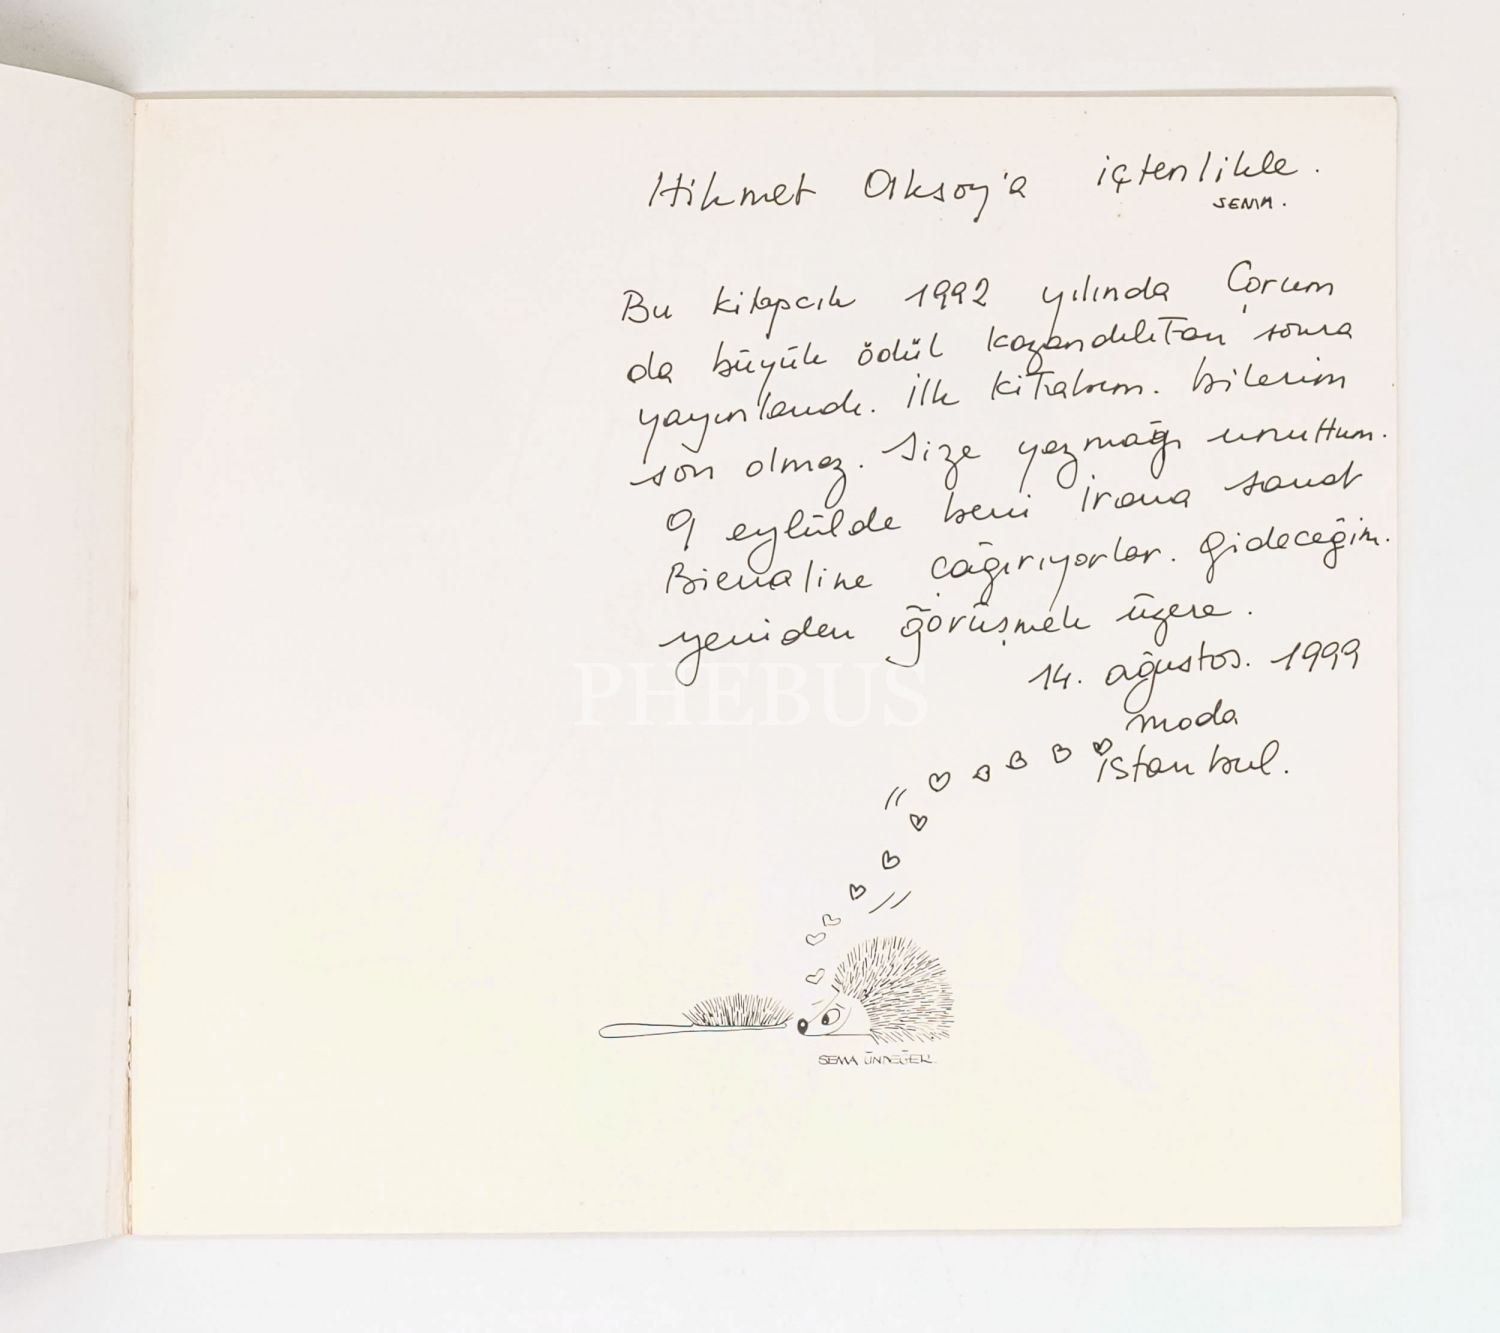 Hikmet Aksoy'a içtenlikle.
SEMA.
Bu kitapcık 1992 yılında Çorum
da büyük ödül kazandıktan sonra
yayınlandı. İlk kitabım. bilerim
son olmaz. Size yazmağı unuttum.
9 eylülde beni İrana sanat
Bienaline çağırıyorlar. Gideceğim.
yeniden görüşmek üzere.
14. ağustos. 1999
moda
istanbul.
PHEBUS
SEMA ÜNDEĞER